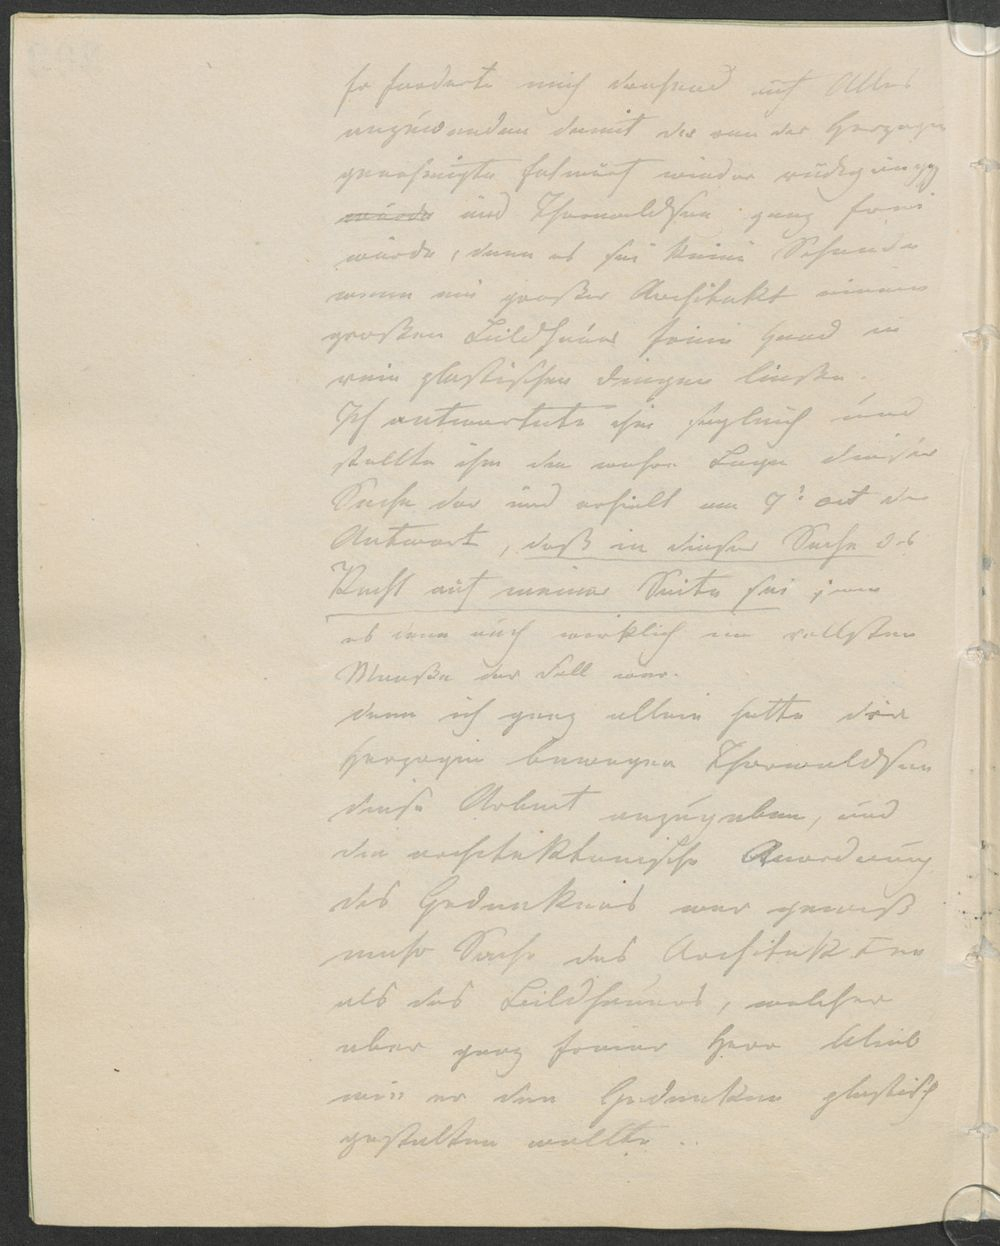 er forderte mich drohend auf Alles
anzuwenden damit der von der Herzogin
genehmigte Entwurf wieder rückgängig
würde und Thorwaldsen ganz frei
würde, denn es sei keine Schande
wenn ein großer Architekt einem
großen Bildhauer seine Hand in
rein plastischen Dingen liehe.
Ich antwortete ihm sogleich und
stellte ihm die wahre Lage dieser
Sache dar und erhielt am 7t oct die
Antwort, daß in dieser Sache das
Recht auf meiner Seite sei, was
es denn auch wirklich im vollsten
Maaße der Fall war.
denn ich ganz allein hatte die
Herzogin bewogen Thorwaldsen
diese Arbeit anzugeben, und
die architektonische Anordnung
des Gedankens war gewiß
mehr Sache des Architekten
als des Bildhauers, welcher
aber ganz freier Herr blieb
wie er den Gedanken plastisch
gestalten wollte.